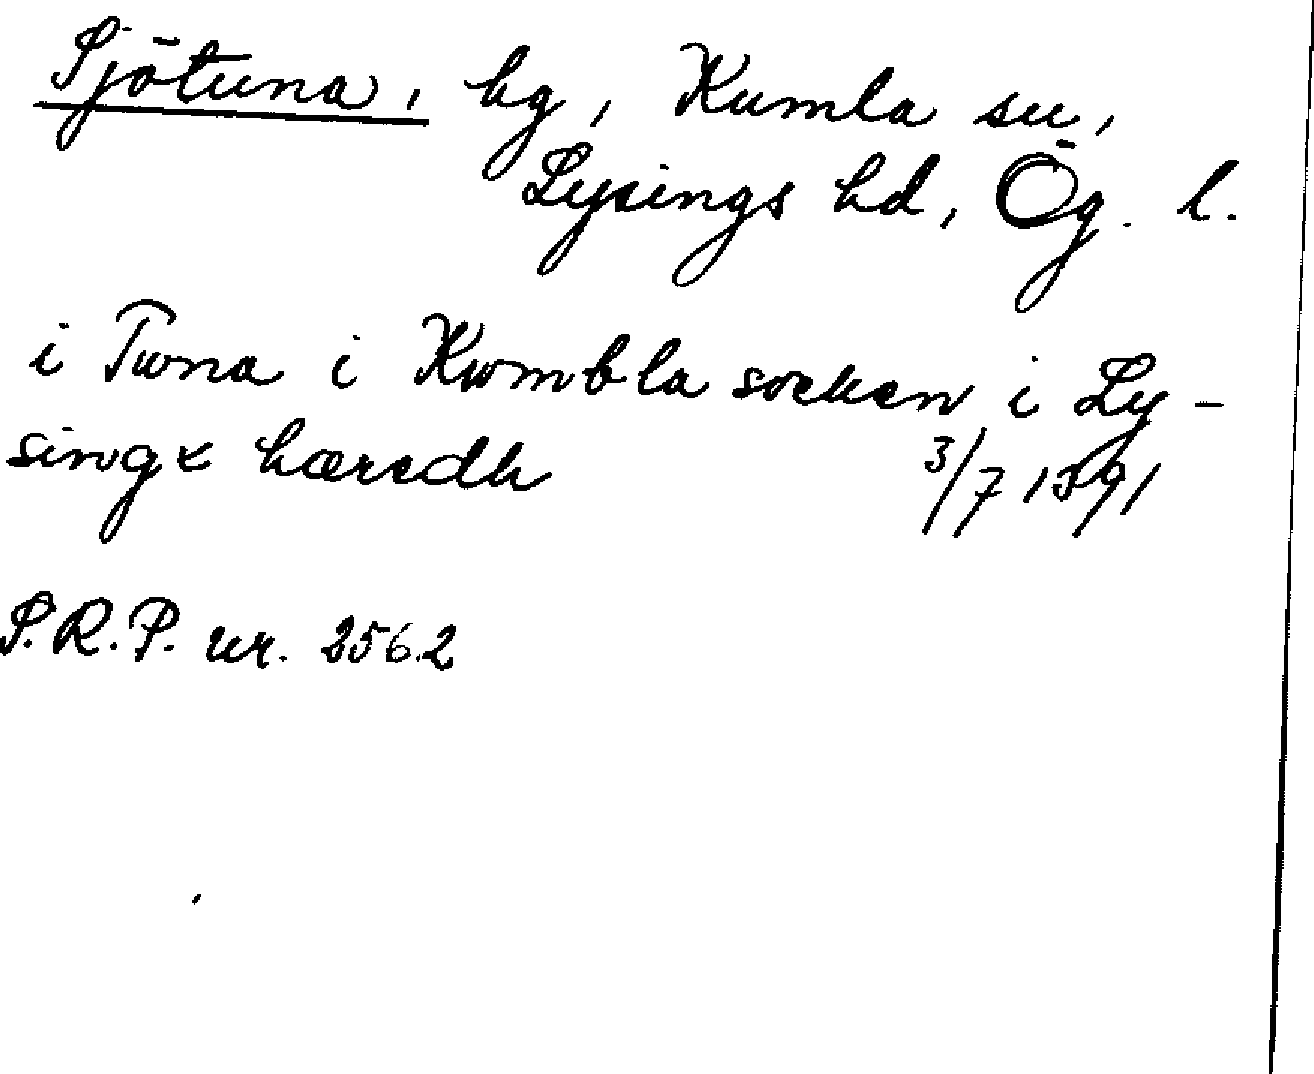 Sjötuna, hg, Kumla sn,
Lysings hd, Ög. l.
i Twna i Kwmbla socken i Ly-
singx hæredh 3/7 1391
S.R.P. nr. 2562